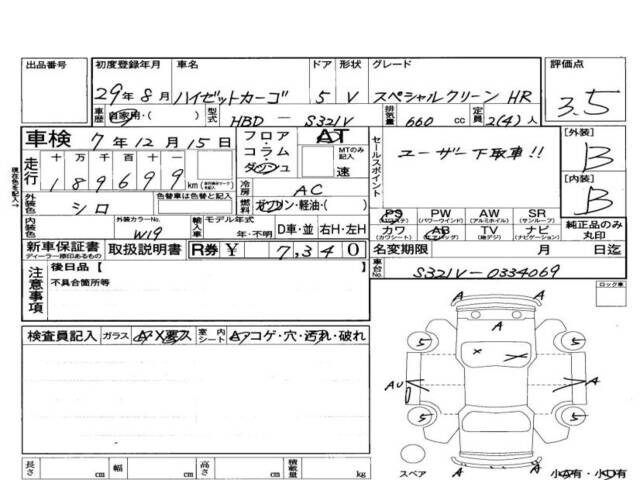 出品番号 初度登録年月 車名 ドア 形状 グレード 評価点
29年8月 ハイゼットカーゴ 5 V スペシャルクリーン HR 3.5
車歴 自家用・( ) 型式 HBD - S321V 排気量 660 cc 定員 2(4)人
車検 7年12月15日 フロア・コラム・ダッシュ AT MTのみ記入 速 セールスポイント ユーザー下取車!! [外装] B
走行 十万千百十一 189699 km
現在色を記入→
外装色 シロ 色替車は色替と記入 冷房 AC [内装] B
燃料 ガソリン・軽油・( )
PS PW AW SR
(パワステ) (パワーウインド) (アルミホイル) (サンルーフ)
内装色 外装カラーNo. W19 輸入車 モデル年式 年・不明 D車・並 右H・左H カワ AB TV ナビ 純正品のみ丸印
(カワシート) (エアバッグ) (地デジ) (ナビゲーション)
新車保証書 取扱説明書 R券 ¥ 7,340 名変期限 月 日迄
ディーラー捺印あるもの
注意事項 後日品【 】 車台No. S321V-0334069
不具合箇所等 ロック車
検査員記入 ガラス A X 要ス 室内シート A コゲ・穴・汚れ・破れ
A A
5 5
AU A
5 5
スペア A A
小A有・小U有
長さ cm 幅 cm 高さ cm 積載量 kg